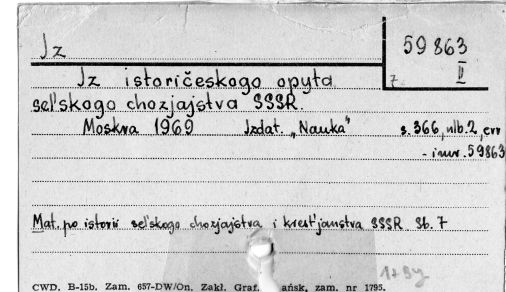 Jz 59863
7 II
Jz istoričeskogo opyta
sel'skogo chozjajstva SSSR.
Moskva 1969 Jzdat. „Nauka" s. 366, nlb. 2, err
- inw. 59863
Mat. po istorii sel'skogo chozjajstva i krest'janstva SSSR Sb. 7
CWD. B-15b. Zam. 657-DW/On. Zakł. Graf. ańsk, zam. nr 1795.